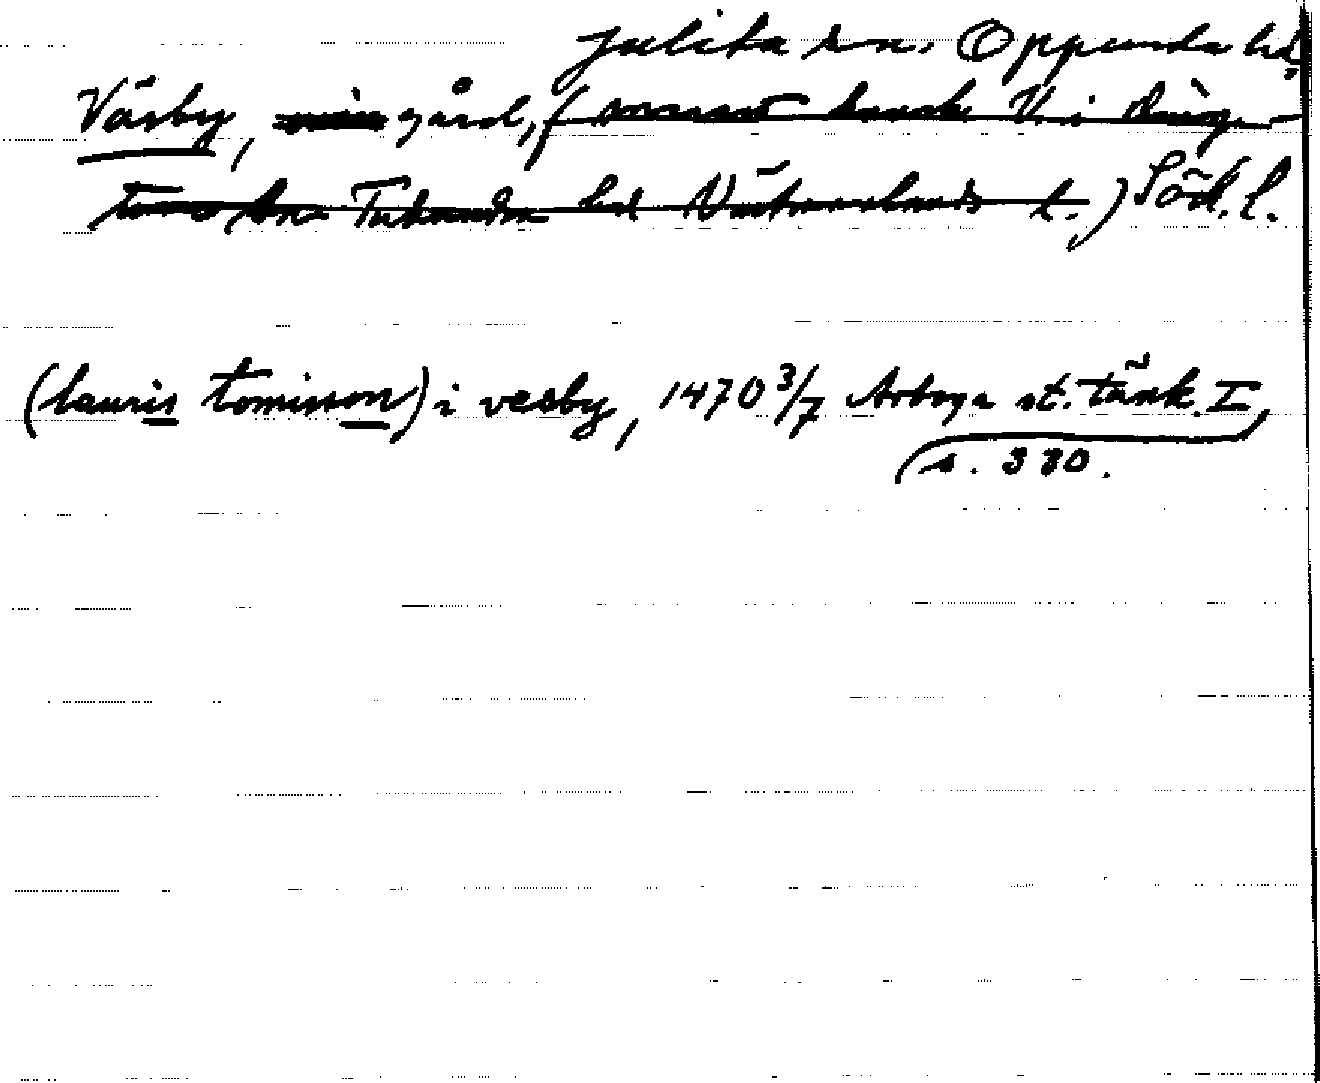 Julita sn. Oppunda hd,
Väsby, gård, ( kanske V. i Ding-
tuna sn Tuhundra hd Västmanlands l.) Söd. l.
(lauris tomisson) i vesby, 1470 3/7 Arboga st. tänk. I,
s. 380.